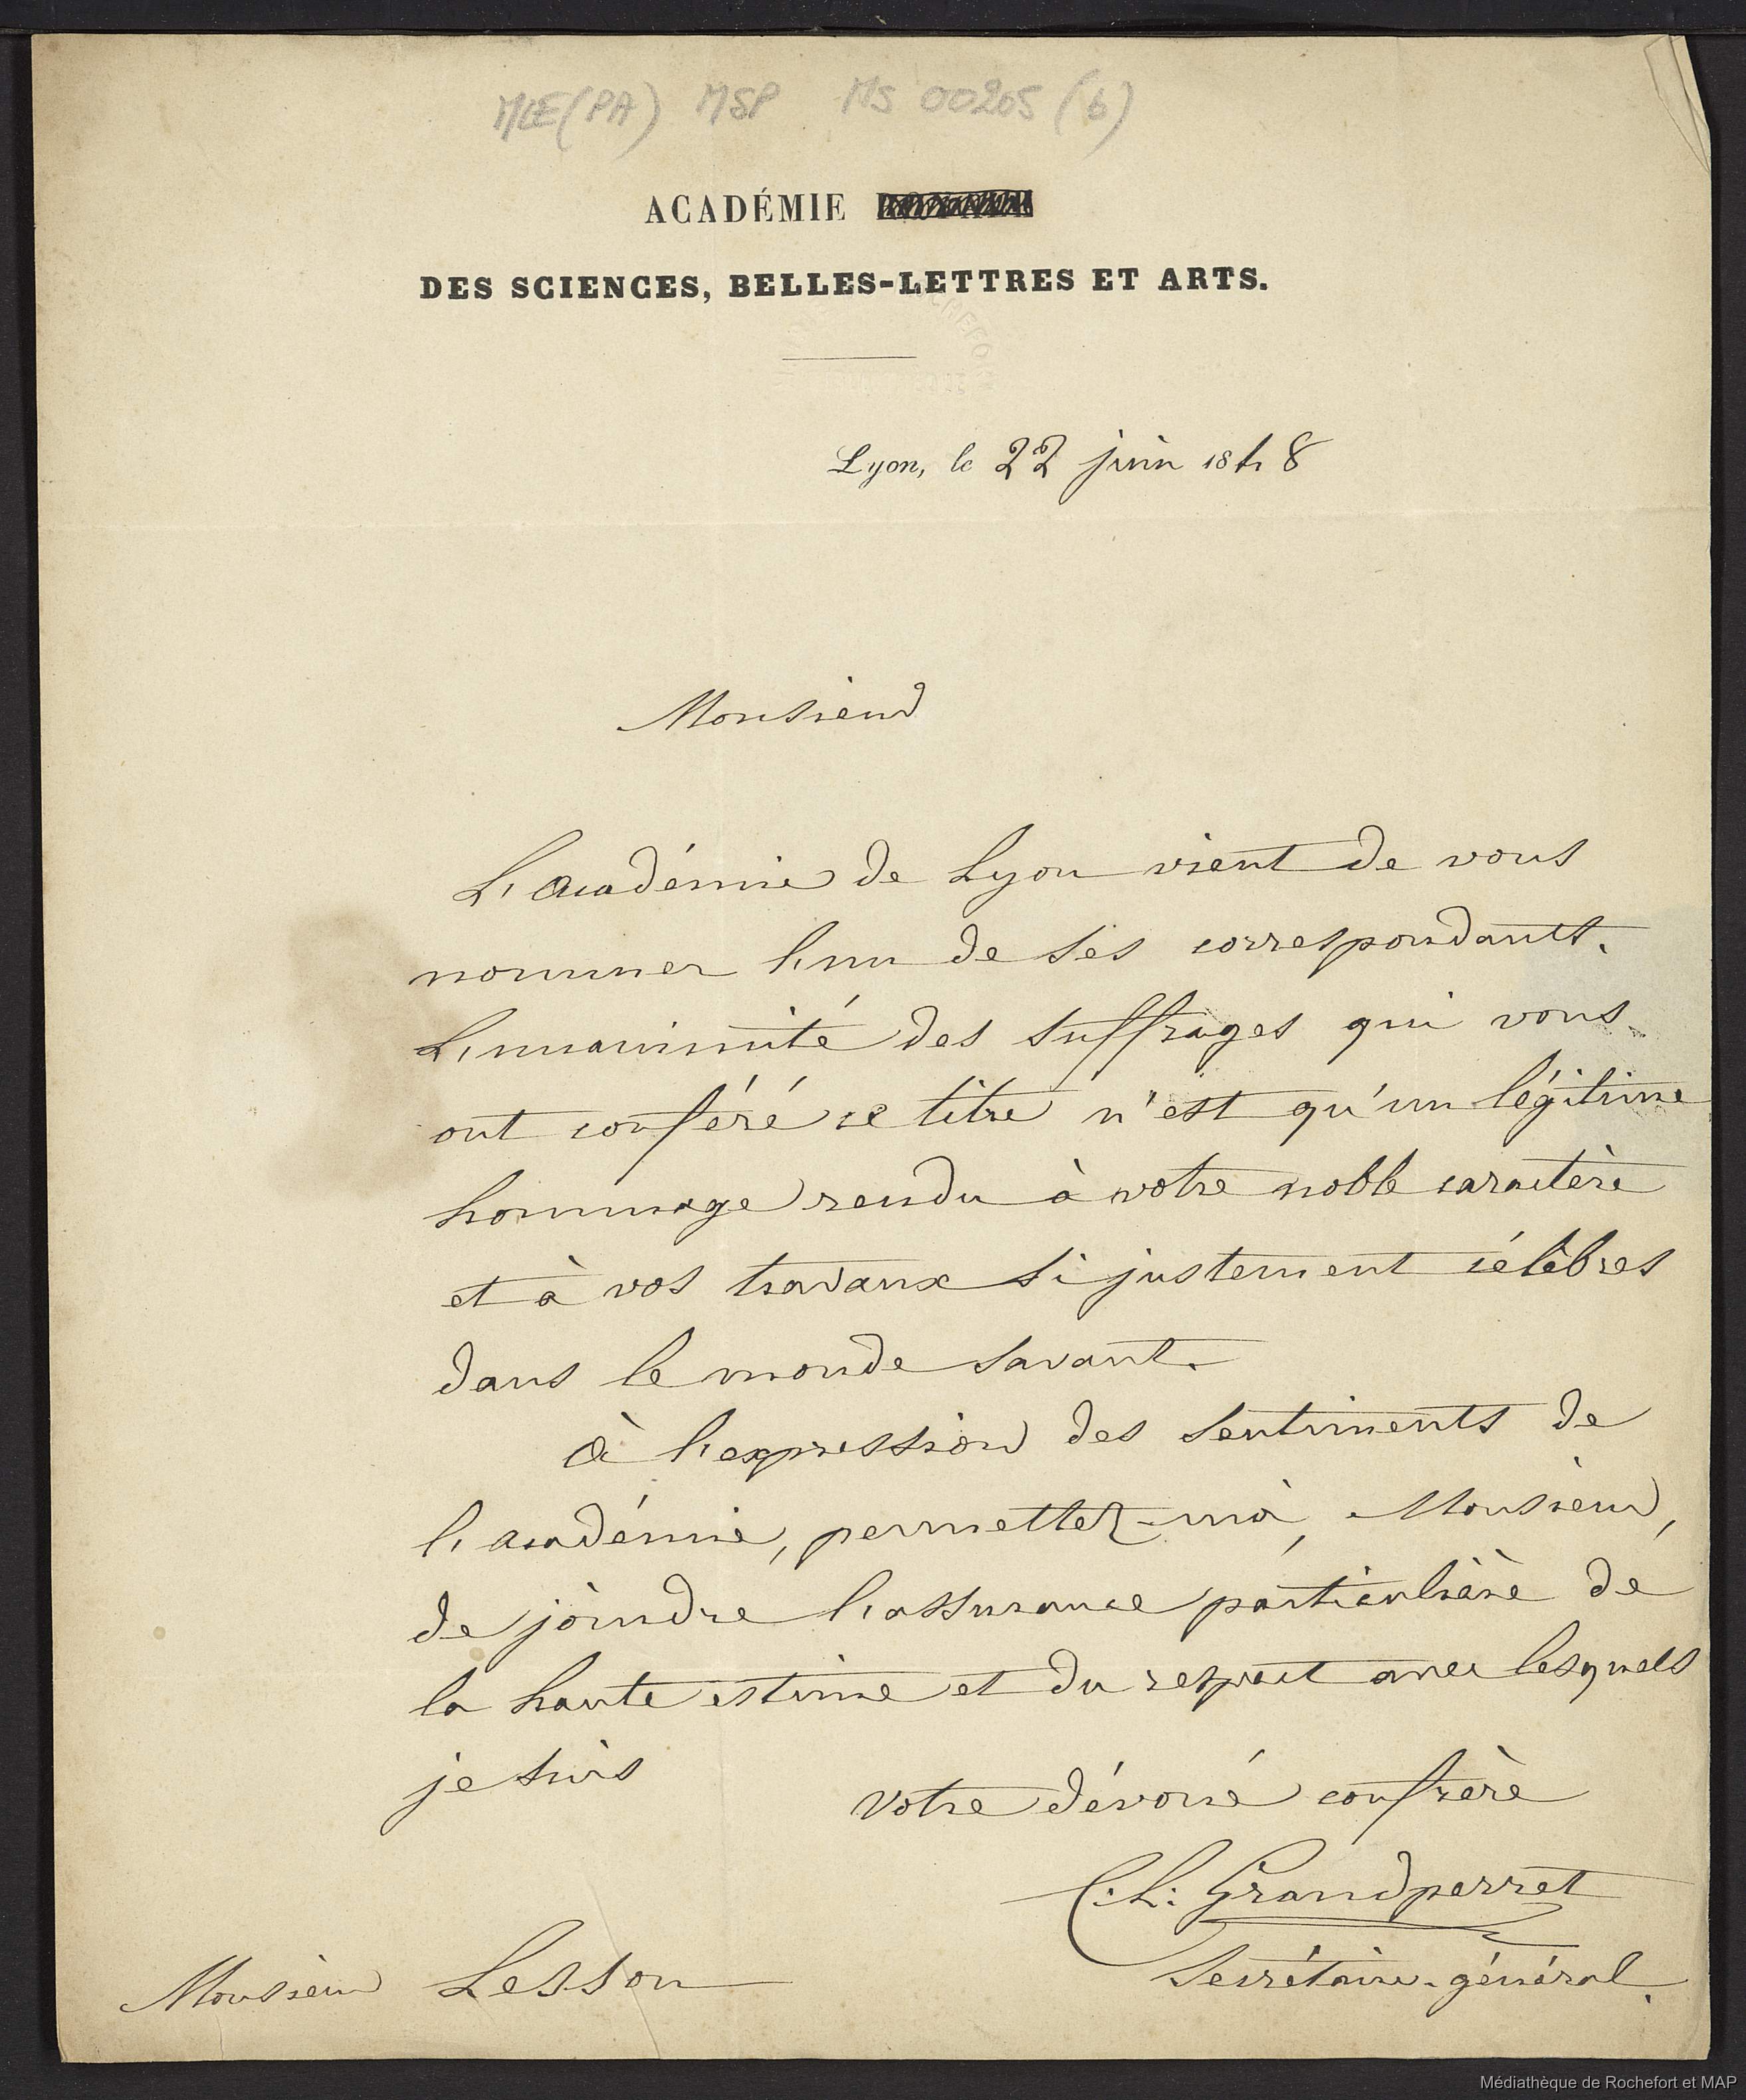 MLE(PA) MSP MS 00205 (6)
ACADÉMIE
DES SCIENCES, BELLES-LETTRES ET ARTS.
Lyon, le 22 juin 1848
Monsieur
L'académie de Lyon vient de vous
nommer l'un de ses correspondants.
L'unanimité des suffrages qui vous
ont conféré ce titre n'est qu'un légitime
hommage rendu à votre noble caractère
et à vos travaux si justement célèbres
dans le monde savant.
à l'expression des sentiments de
l'académie, permettez-moi, Monsieur,
de joindre l'assurance particulière de
la haute estime et du respect avec lesquels
je suis
votre dévoué confrère
C. L. Grandperret
Secrétaire-général.
Monsieur Lesson
Médiathèque de Rochefort et MAP